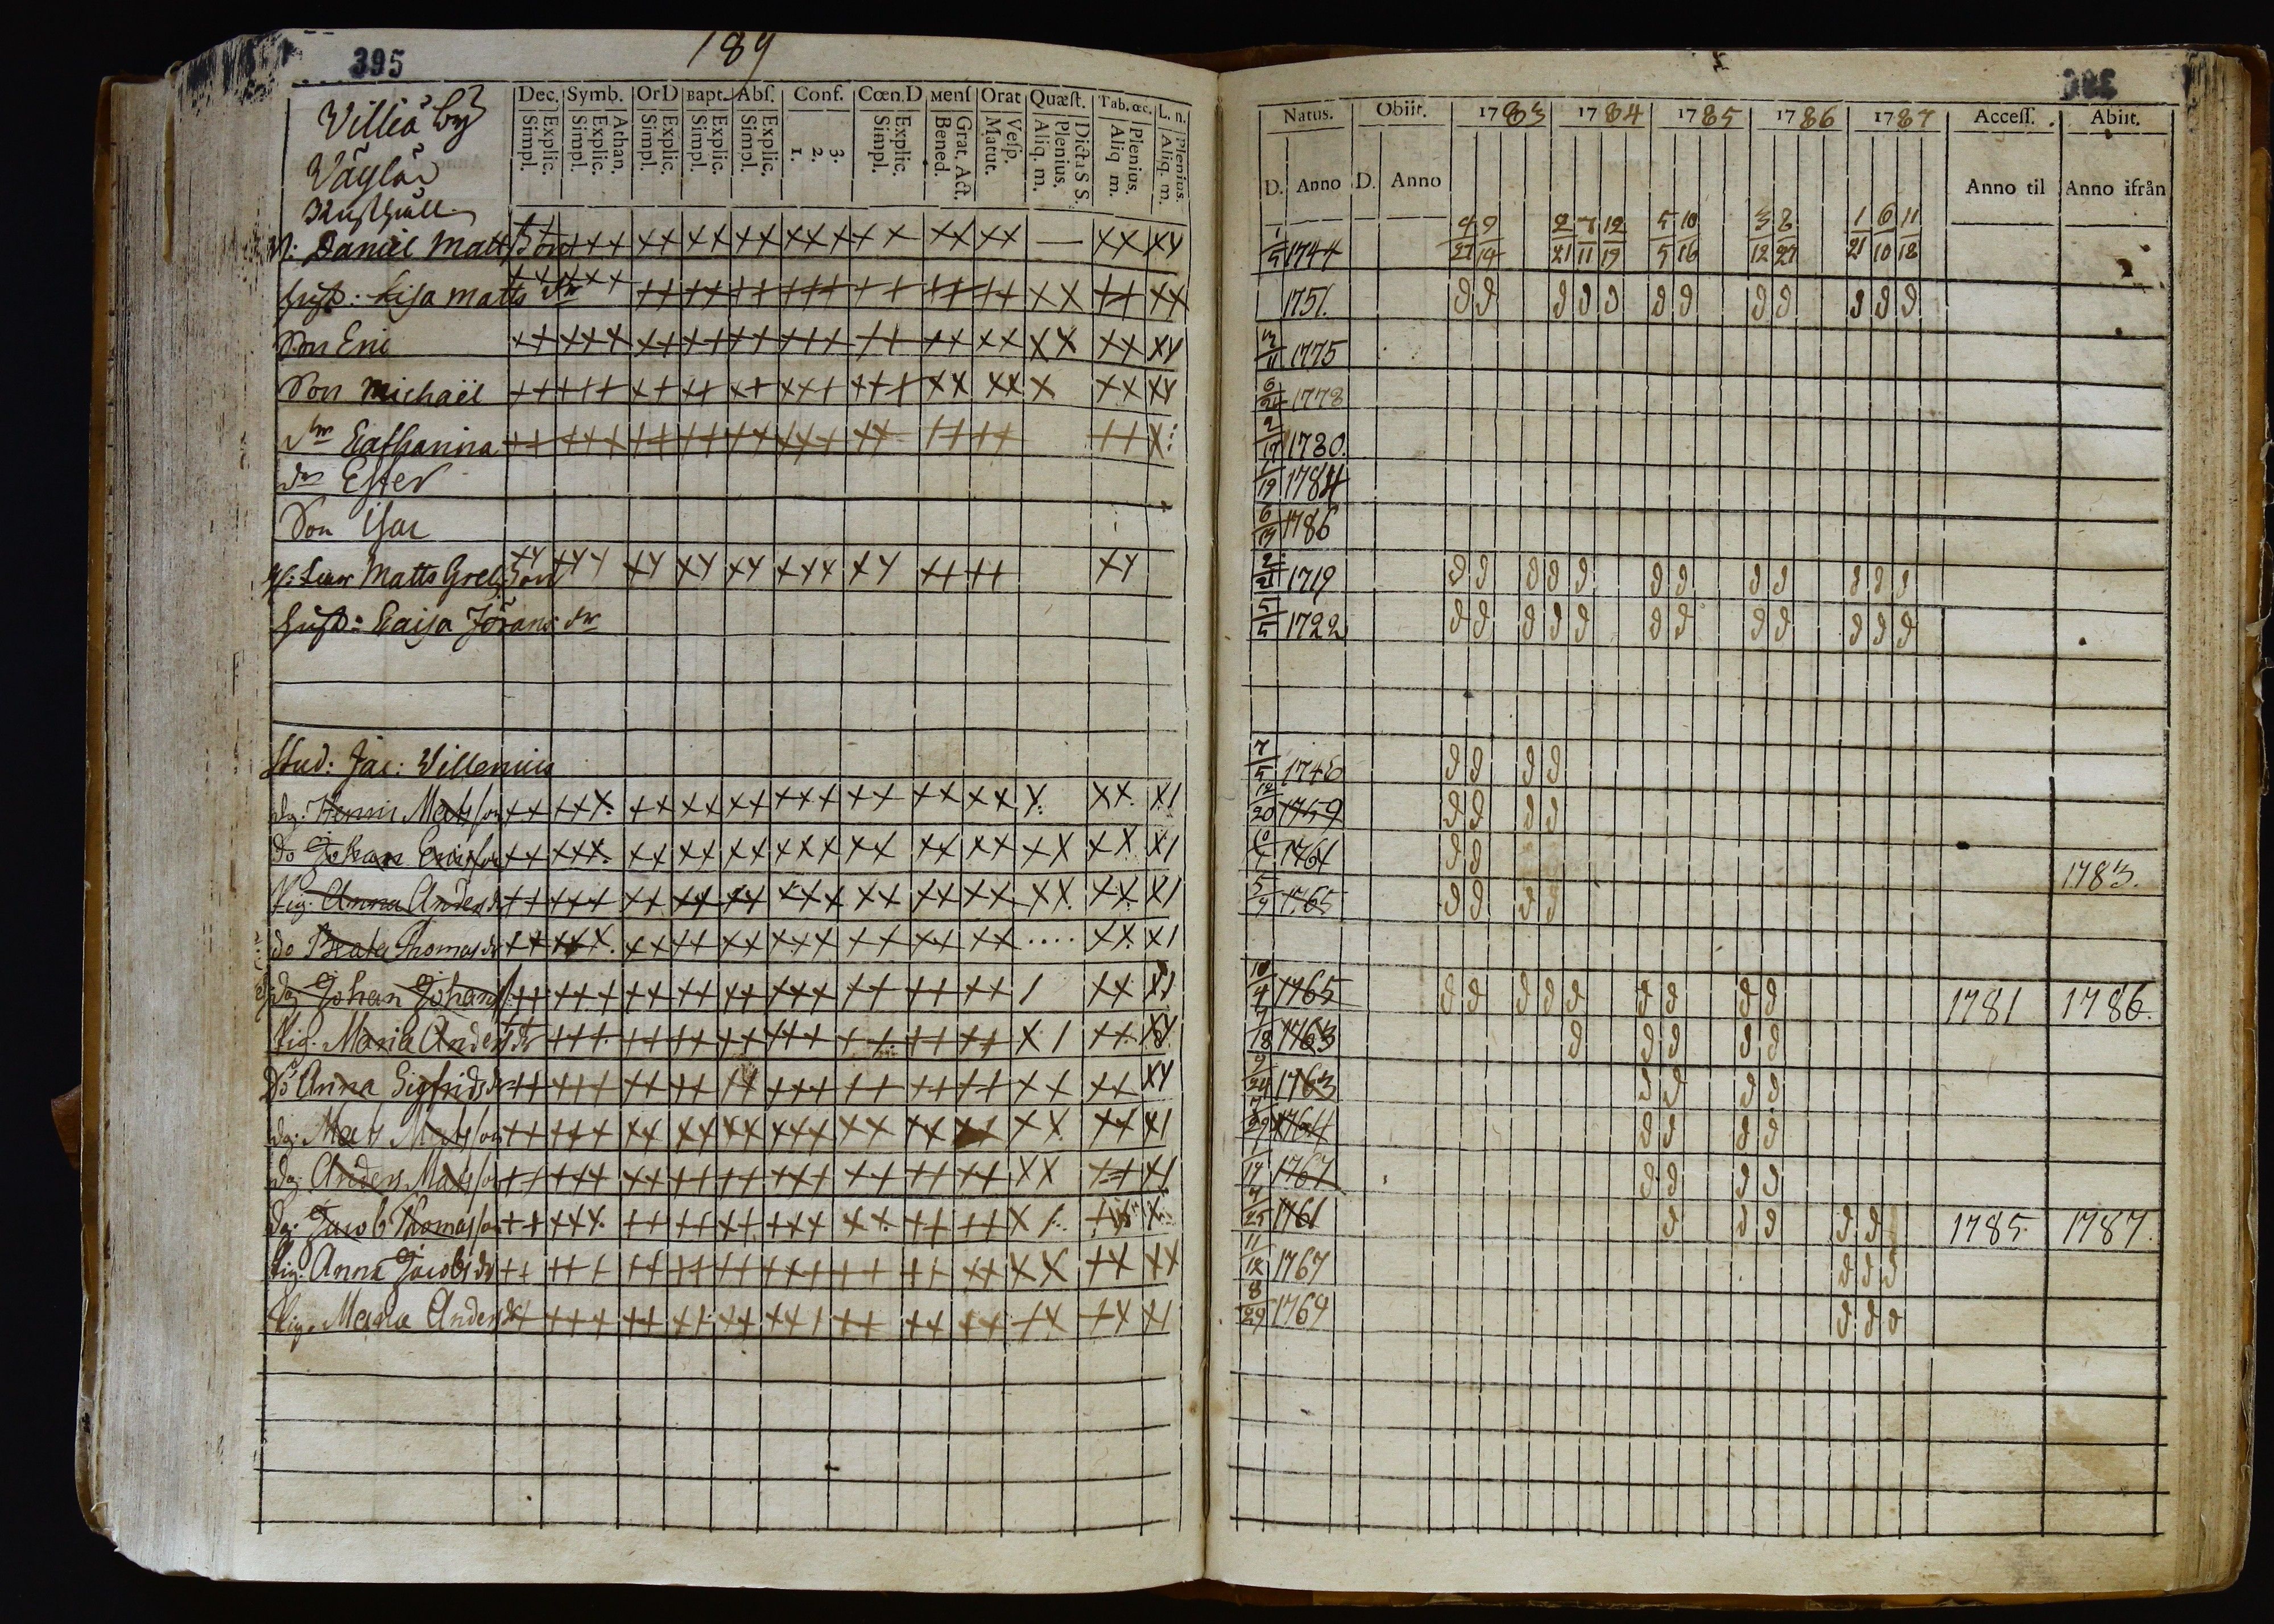 395
189
Dec. Symb. OrD Bapt. Abſ. Conf. Cœn.D Menſ Orat Quæſt. Tab. œc. L. n.
Explic. Simpl.
Athan. Explic. Simpl.
Explic. Simpl.
Explic. Simpl.
Explic. Simpl.
3. 2. 1.
Explic. Simpl.
Grat. Act. Bened.
Veſp. Matut.
Dicta S S. Plenius. Aliq. m.
Plenius. Aliq m.
Plenius. Aliq. m.
Villiä by
Väylä
Rusthåll
Daniel Matts Son
hust: Lisa Matts dr
Son Eric
Son Michaël
dr Catharina
dr Ester
Son Isac
Matts Greg Son
hust: Caisa Jörans dr
Stud: Jac: Villenius
dg: Henric Matsson
do Johan Ericsson
Pig: Anna Anders dr
do Beata Thomas dr
dg Johan Johans
Pig. Maria Anders dr
Do Anna Sigfrids dr
dg: Mats Matsson
dg: Anders Matsson
dg: Jacob Thomasson
Pig. Anna Jacobs dr
Pig. Maria Anders dr
Natus. Obiit. 1783 1784 1785 1786 1787 Acceſſ. Abiit.
D. Anno D. Anno Anno til Anno ifrån
4 9 2 7 12 5 10 3 8 1 6 11
1/5 1744 27 14 21 11 19 5 16 12 27 21 10 18
1751.
1775
6/24 1778
2/17 1780.
1/19 1784
6/13 1786
2/21 1719
5/5 1722
7/5 1746
12/20 1759
1764 1783.
5/9 1765
10/4 1765 1781 1786.
7/18 1763
9/24 1763
7/29 1764
1/17 1767
4/25 1761 1785 1787.
11/12 1767
8/29 1769